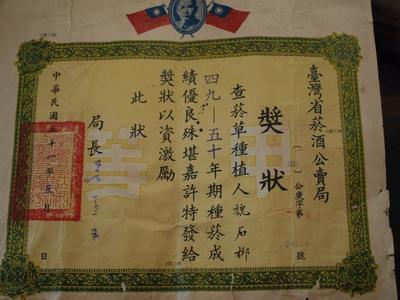 臺灣省菸酒公賣局
獎狀
(  )公賡字第
號
查菸草種植人
四九—五十年期種菸成
績優良殊堪嘉許特發給
獎狀以資激勵
此狀
局長
中華民國五十一年五月
日